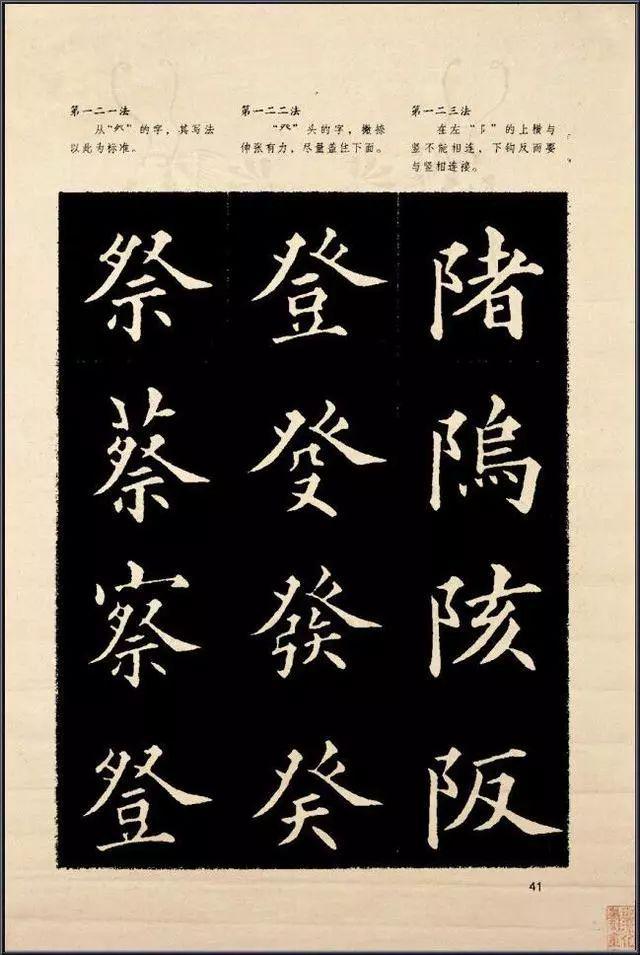 第一二一法
从“癶”的字，其写法
以此为标准。
第一二二法
“癶”头的字，撇捺
伸张有力，尽量盖住下面。
第一二三法
在左“阝”的上横与
竖不能相连，下钩反而要
与竖相连接。
祭
蔡
察
豋
登
癹
發
癸
陼
隖
陔
阪
41